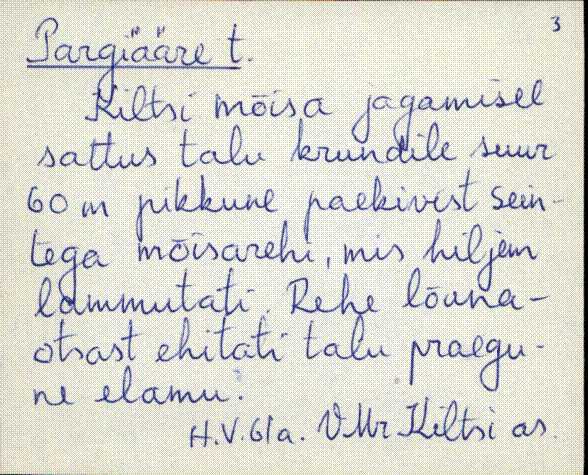 3
Pargiääre t.
Kiltsi mõisa jagamisel
sattus talu krundile suur
60 m pikkune paekivist sein-
tega mõisarehi, mis hiljem
lammutati. Rehe lõuna-
otsast ehitati talu praegu-
ne elamu.
H.V. 61a. VMr Kiltsi as.